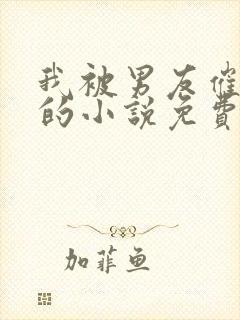 我被男友催
的小说免費
加菲鱼